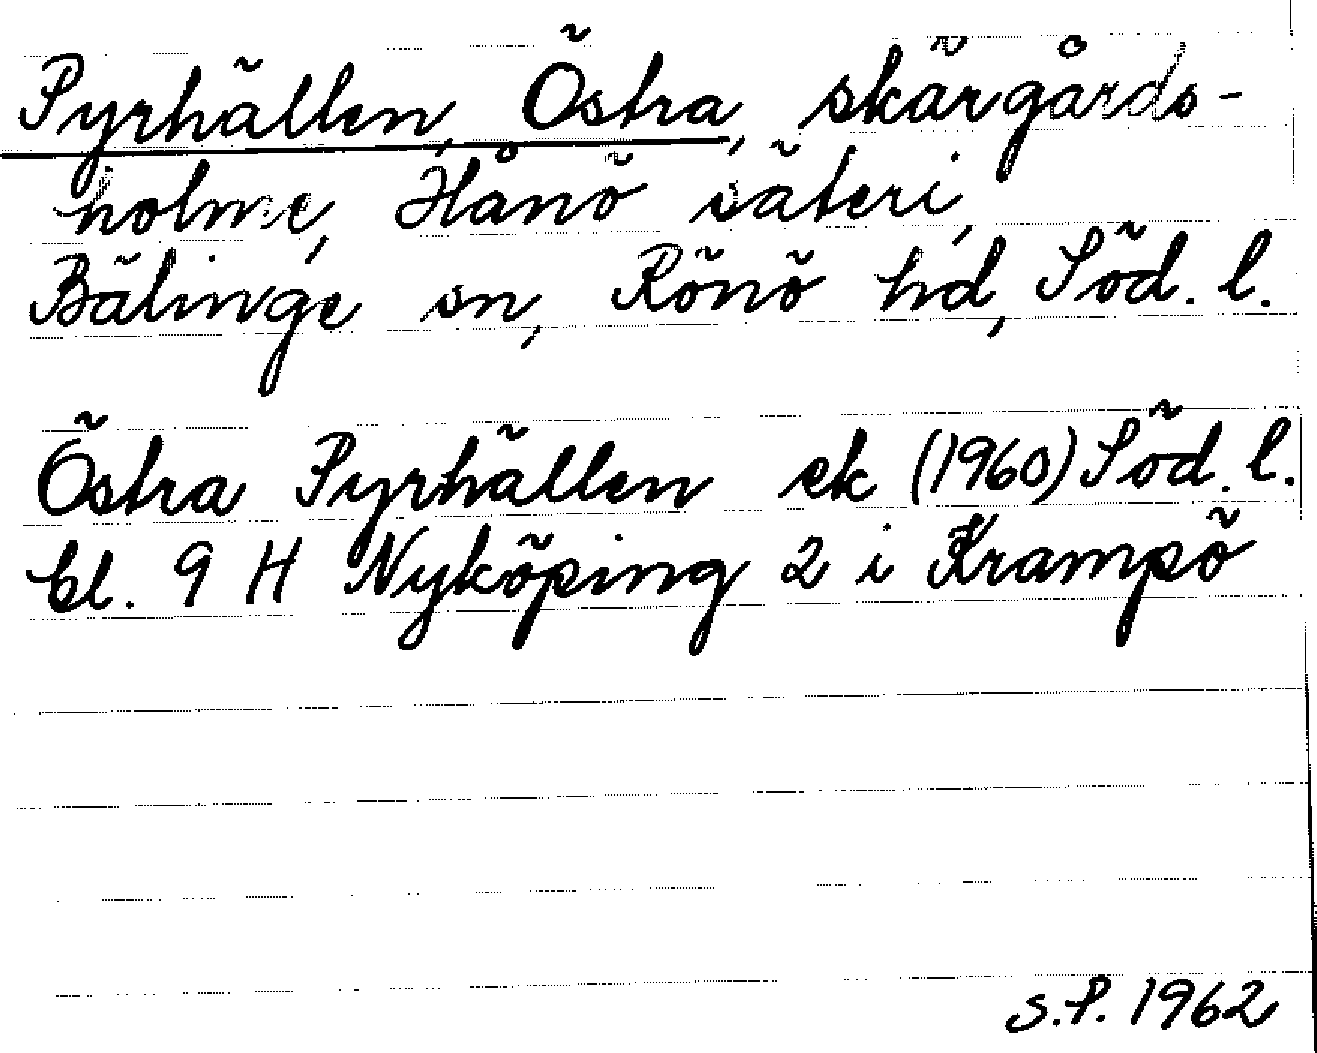 Pyrhällen, Östra, skärgårds-
holme, Hånö säteri,
Bälinge sn, Rönö hd, Söd. l.
Östra Pyrhällen ek (1960) Söd. l.
bl. 9 H Nyköping 2 i Krampö
S.P. 1962